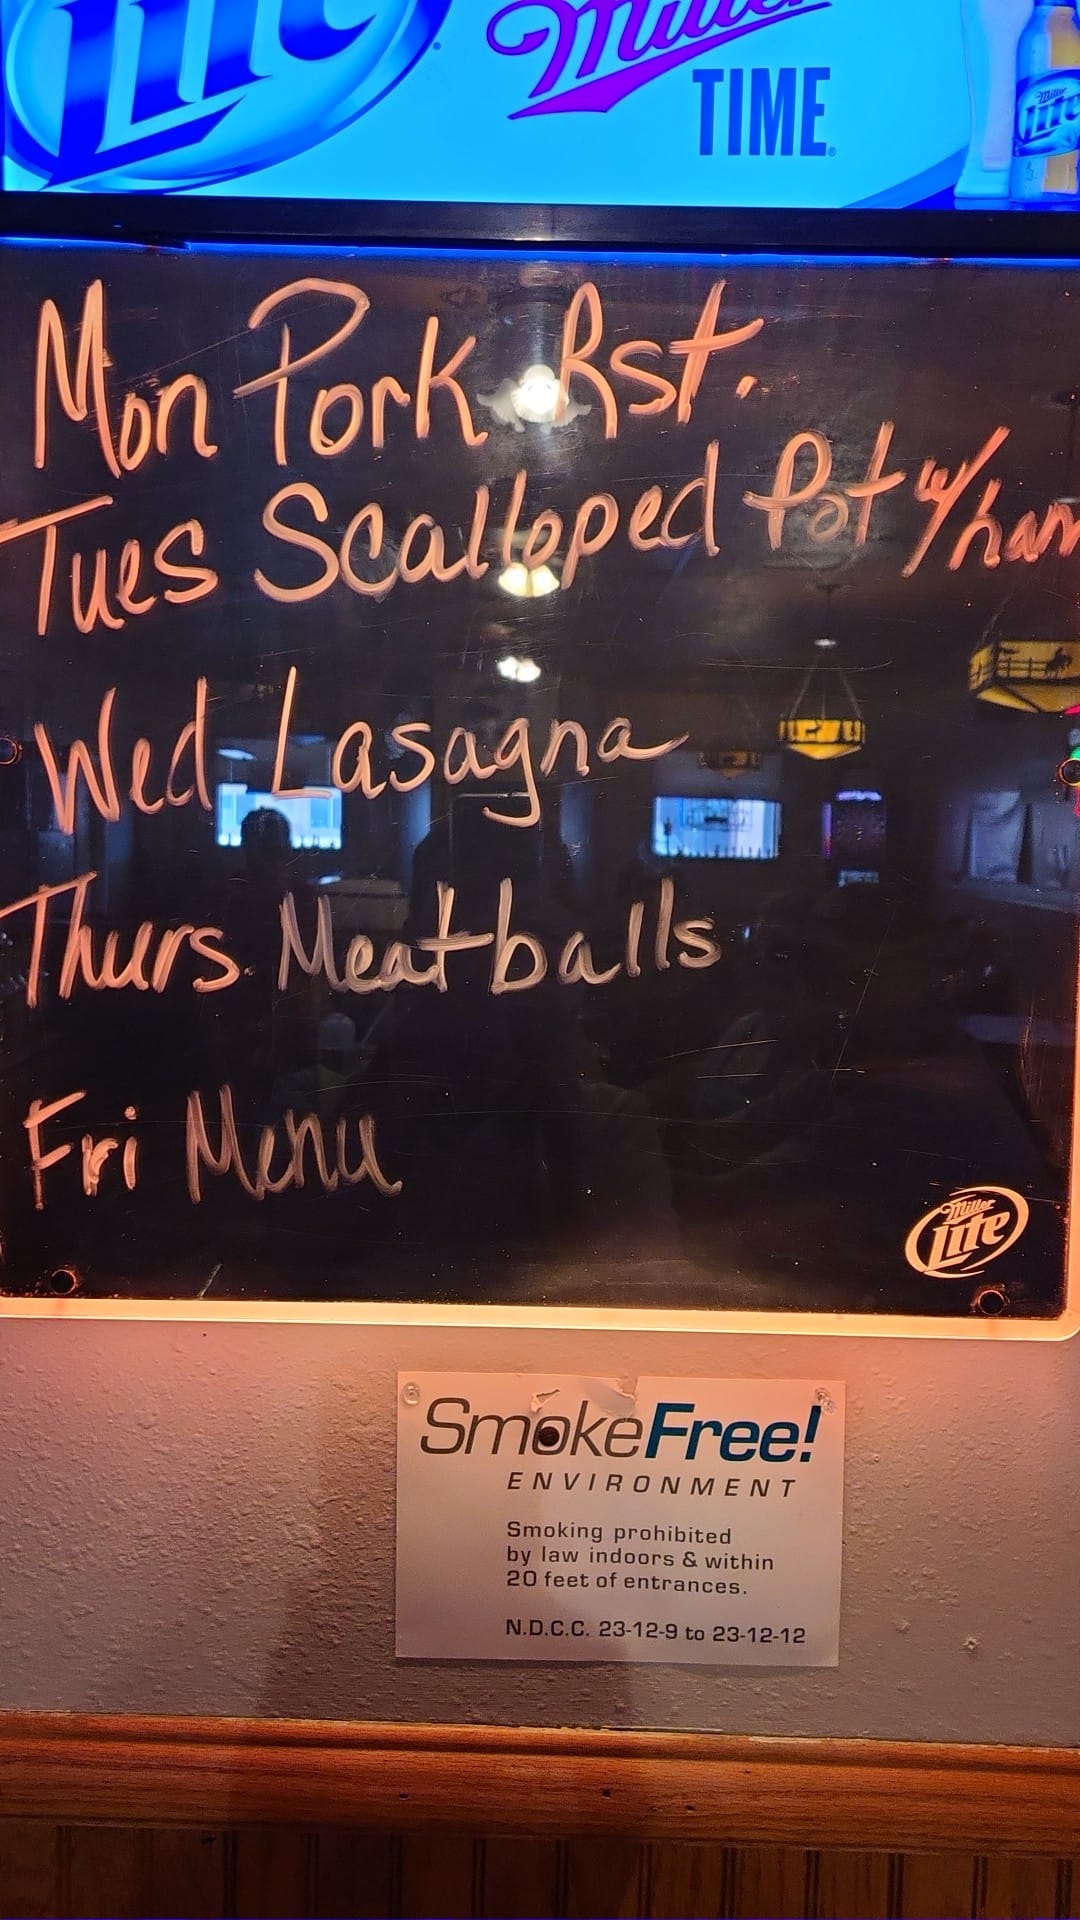 Lite
Miller
TIME
Miller
Lite
Mon Pork Rst.
Tues Scalloped Pot w/ham
Wed Lasagna
Thurs. Meatballs
Fri Menu
Miller
Lite
SmokeFree!
ENVIRONMENT
Smoking prohibited
by law indoors & within
20 feet of entrances.
N.D.C.C. 23-12-9 to 23-12-12